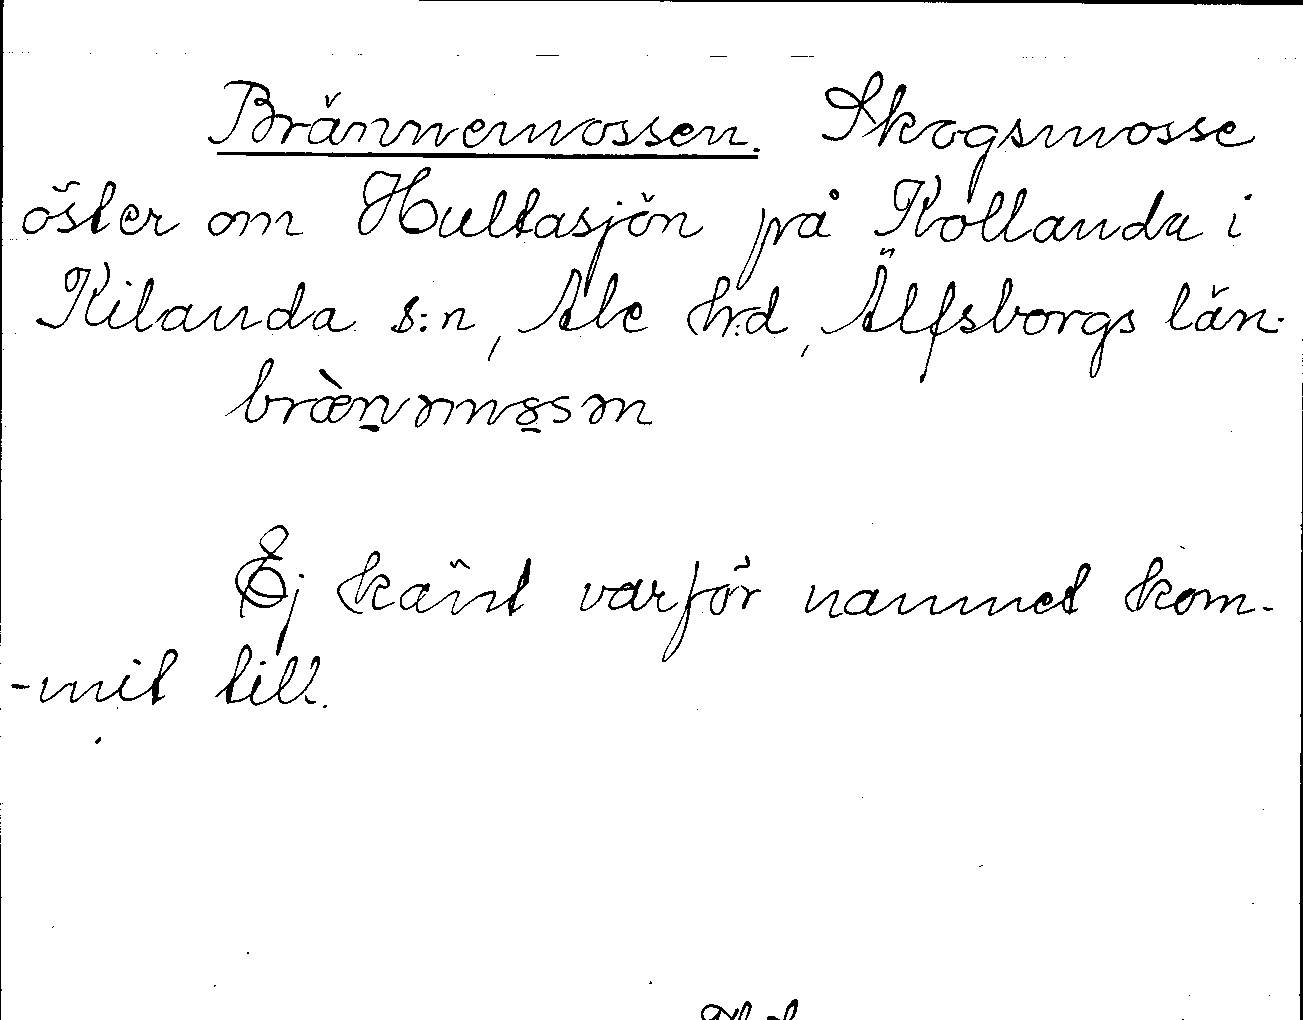 Brännemossen. Skogsmosse
öster om Hultasjön på Kollanda i
Kilanda s:n, Ale h:d, Älfsborgs län.
Ej känt varför namnet kom-
-mit till.